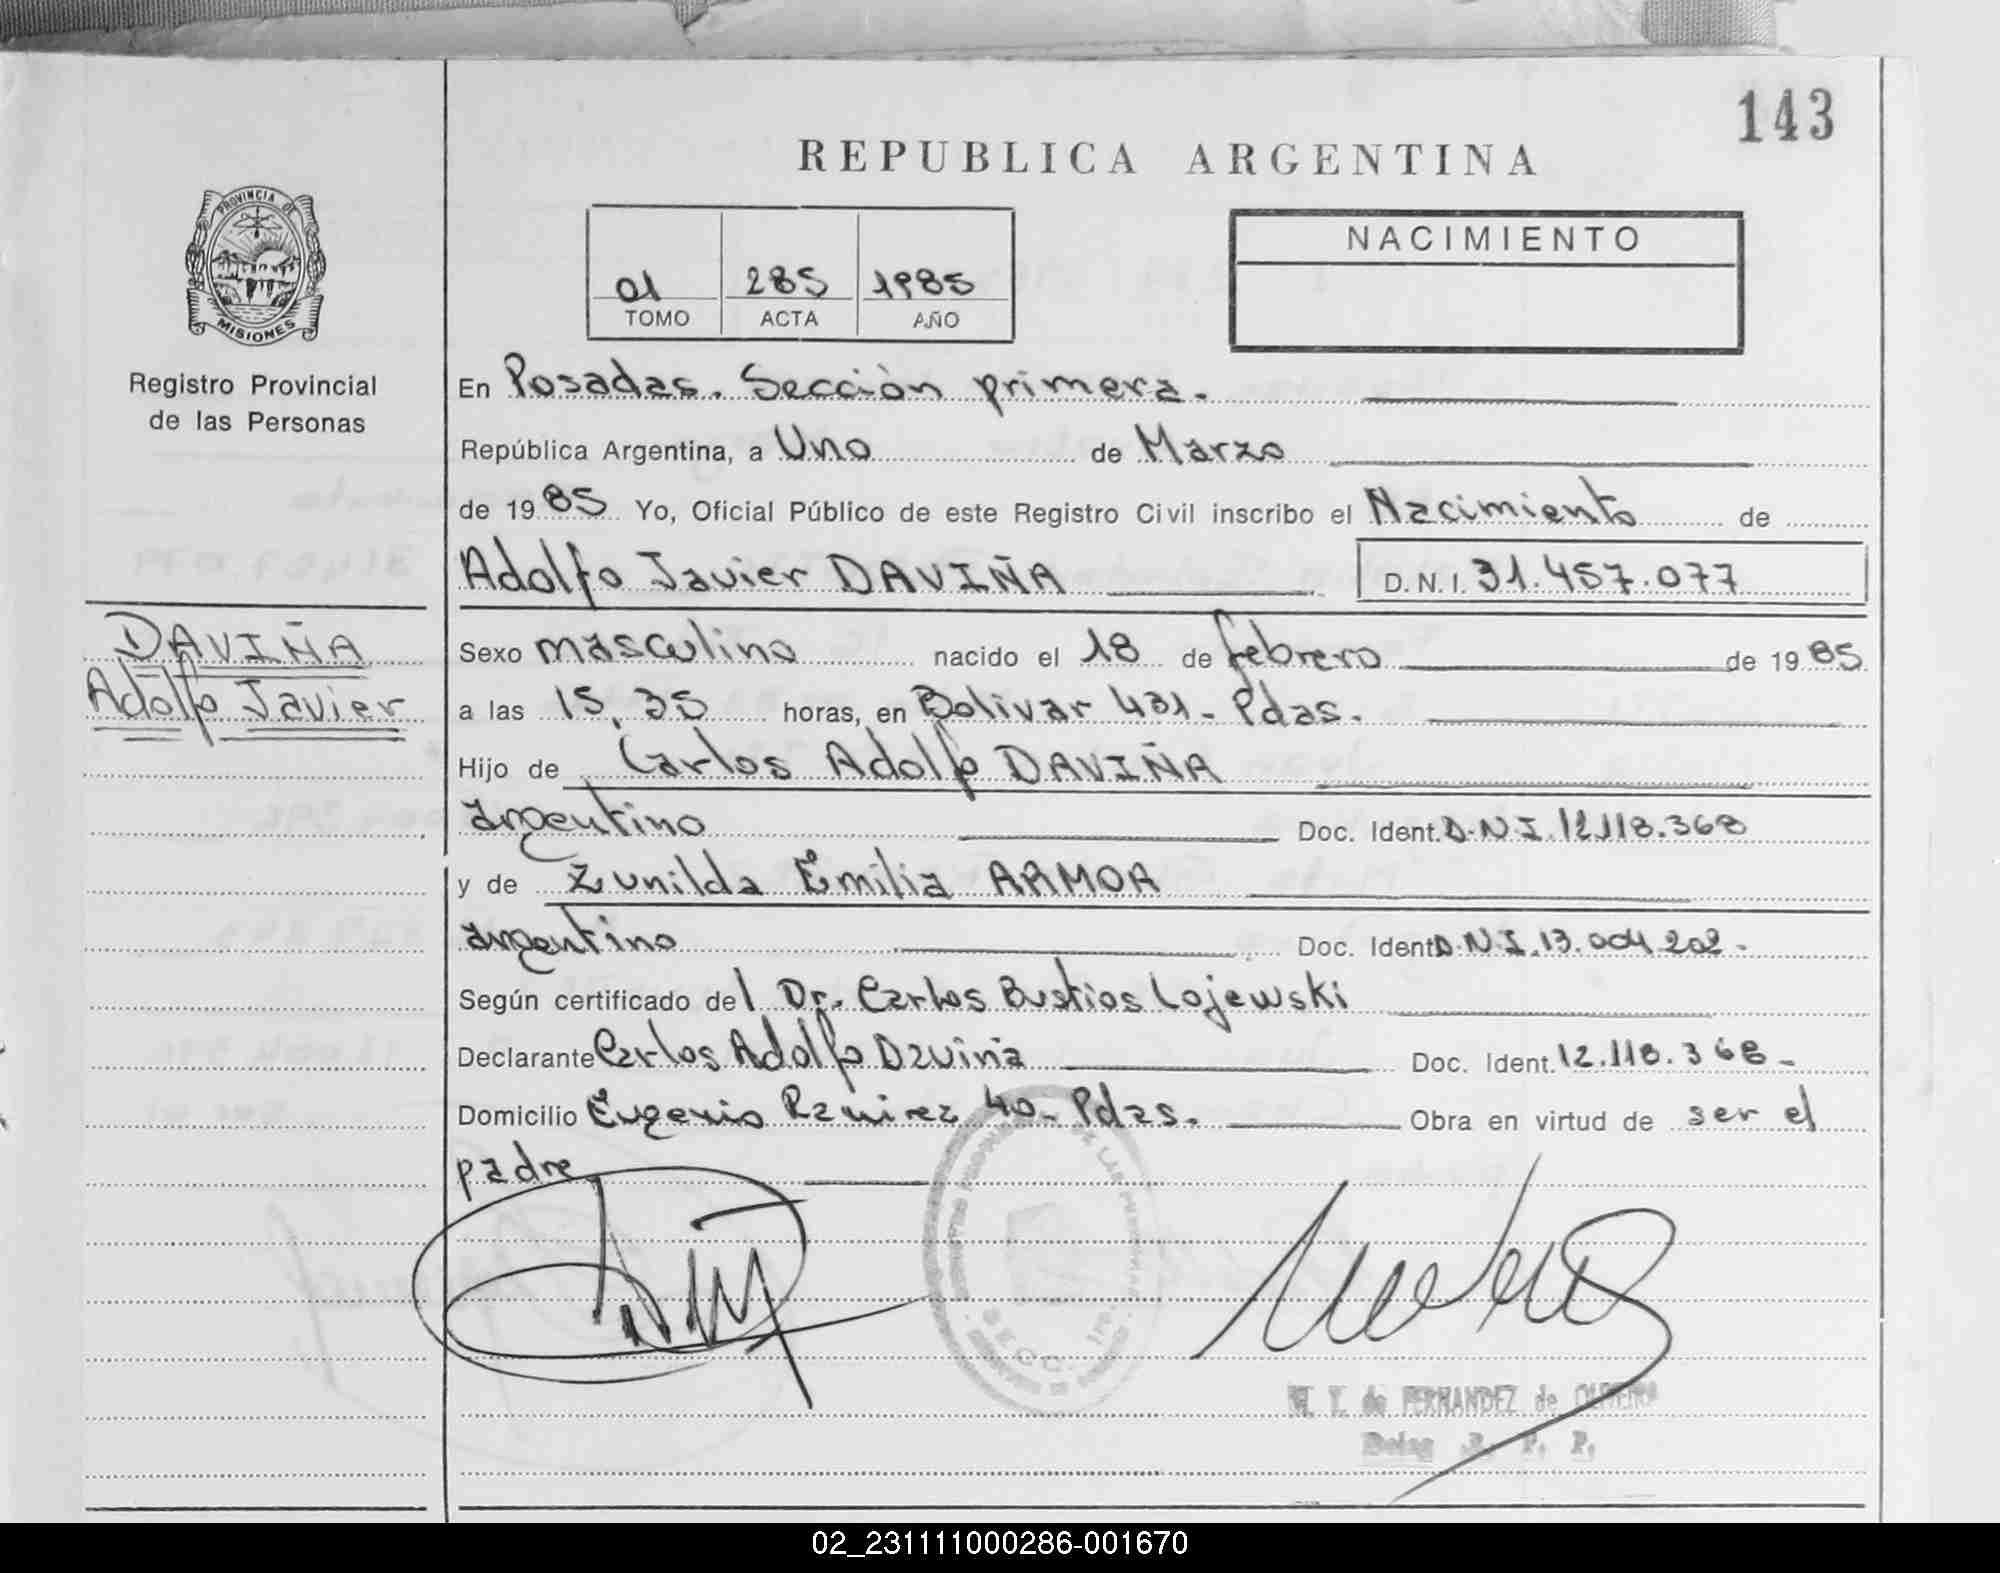 143
REPUBLICA ARGENTINA
PROVINCIA DE
MISIONES
Registro Provincial
de las Personas
01 285 1985
TOMO ACTA AÑO
NACIMIENTO
En Posadas. Sección primera.
República Argentina, a Uno de Marzo
de 1985 Yo, Oficial Público de este Registro Civil inscribo el Nacimiento de
Adolfo Javier DAVIÑA D.N.I. 31.457.077
DAVIÑA
Adolfo Javier
Sexo masculino nacido el 18 de febrero de 1985
a las 15,35 horas, en Bolivar 431- Pdas.
Hijo de Carlos Adolfo DAVIÑA
argentino Doc. Ident. D.N.I. 12.118.368
y de Zunilda Emilia ARMOA
argentino Doc. Ident D.N.I. 13.004.202-
Según certificado del Dr. Carlos Bustios Lojewski
Declarante Carlos Adolfo Daviña Doc. Ident. 12.118.368-
Domicilio Eugenio Ramirez 40- Pdas. Obra en virtud de ser el
padre
DE LAS PERSONAS
SECC. 1ra.
M. Y. de FERNANDEZ de OLIVEIRA
Deleg R. P. P.
02_231111000286-001670